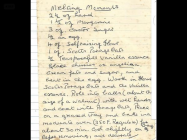 Melting Moments
2½ oz lard
1½ oz margarine
3 oz Castor Sugar
½ egg
4 oz Self raising flour
1 oz Scotts Porage Oats
½ teaspoonful Vanilla essence
Cream fat and sugar, and
beat in the egg. Work in flour
Scotts Porage Oats and the Vanilla
essence. Roll into balls (about the
size of a walnut) with wet hands
and coat with Porage Oats. Place
on a greased tray and bake in a
moderate oven for
about 20 min.